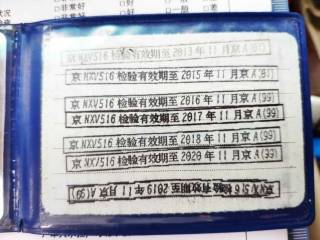 非常好
好
一般
差
京NXV516 检验有效期至2013年11月京A(81)
京NXV516 检验有效期至2015年11月京A(81)
京NXV516 检验有效期至2016年11月京A(99)
京NXV516 检验有效期至2017年11月京A(99)
京NXJ516 检验有效期至2018年11月京A(99)
京NXJ516 检验有效期至2020年11月京A(39)
京NXJ516 检验有效期至2019年11月京A(99)